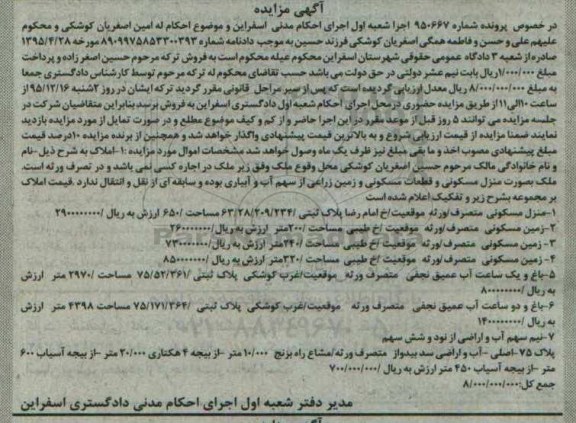 آگهی مزایده
در خصوص پرونده شماره ۹۵۰۶۶۷ اجرا شعبه اول اجرای احکام مدنی اسفراین و موضوع احکام له امین اصغریان کوشکی و محکوم
علیهم علی و حسن و فاطمه همگی اصغریان کوشکی فرزند حسین به موجب دادنامه شماره ۸۹۰۹۹۷۵۸۵۳۳۰۰۳۹۳ مورخه ۱۳۹۵/۴/۲۸
صادره از شعبه ۳ دادگاه عمومی حقوقی شهرستان اسفراین محکوم علیه محکوم است به فروش ترکه مرحوم حسین اصغر زاده و پرداخت
مبلغ ۱/۰۰۰/۰۰۰ریال بابت نیم عشر دولتی در حق دولت می باشد حسب تقاضای محکوم له ترکه مرحوم توسط کارشناس دادگستری جمعا
به مبلغ ۸/۰۰۰/۰۰۰/۰۰۰ ریال معدل ارزیابی گردیده است که پس از سیر مراحل قانونی مقرر گردید ترکه ایشان در روز ۲شنبه ۹۵/۱۲/۱۶ از
ساعت ۱۰الی۱۱ از طریق مزایده حضوری در محل اجرای احکام شعبه اول دادگستری اسفراین به فروش برسد بنابراین متقاضیان شرکت در
جلسه مزایده می توانند ۵ روز قبل از موعد مقرر در این اجرا حاضر و از کم و کیف موضوع مطلع و در صورت تمایل از مورد مزایده بازدید
نمایند ضمنا مزایده از قیمت ارزیابی شروع و به بالاترین قیمت پیشنهادی واگذار خواهد شد و همچنین از برنده مزایده ۱۰درصد قیمت
مبلغ پیشنهادی مصوب اخذ و ما بقی مبلغ نیز ظرف یک ماه وصول خواهد شد مشخصات اموال مورد مزایده :۱-املاک به شرح ذیل -نام
و نام خانوادگی مالک مرحوم حسین اصغریان کوشکی محل وقوع ملک وفق زیر ملک در اجاره کسی نمی باشد و در تصرف ورثه است.
ملک بصورت منزل مسکونی و قطعات مسکونی و زمین زراعی از سهم آب و آبیاری بوده و سابقه ای از نقل و انتقال ندارد .قیمت املاک
بر مجموعه بشرح زیر و تفکیک اعلام شده است
۱-منزل مسکونی متصرف/ورثه موقعیت/خ امام رضا پلاک ثبتی /۶۳/۲۸/۲۰۹/۲۳۴ مساحت /۶۵۰ ارزش به ریال /۲۹۰۰۰۰۰۰۰۰
۲-زمین مسکونی متصرف/ورثه موقعیت /خ طیبی مساحت /۲۰۰متر ارزش به ریال/۲۶۰۰۰۰۰۰۰
۳- زمین مسکونی متصرف/ورثه موقعیت /خ طیبی مساحت /۲۴۰متر ارزش به ریال/۷۳۰۰۰۰۰۰۰
۴- زمین مسکونی متصرف/ورثه موقعیت /خ طیبی مساحت /۳۲۰متر ارزش به ریال /۸۵۰۰۰۰۰۰۰
۵-باغ و یک ساعت آب عمیق نجفی متصرف ورثه موقعیت/غرب کوشکی پلاک ثبتی /۷۵/۵۲/۳۶۱ مساحت /۲۹۷۰ متر ارزش
به ریال /۸۰۰۰۰۰۰۰۰
۶-باغ و دو ساعت آب عمیق نجفی متصرف ورثه موقعیت/غرب کوشکی پلاک ثبتی /۷۵/۱۷۱/۳۶۴ مساحت ۴۳۹۸ متر ارزش
به ریال /۱۴۰۰۰۰۰۰۰۰
۷-نیم سهم آب و اراضی از نود و شش سهم
پلاک ۷۵-اصلی -آب و اراضی سد بیدواز متصرف ورثه/مشاع راه بزنج ۱۰/۰۰۰ متر -از بیجه ۴ هکتاری ۲۰/۰۰۰ متر -از بیجه آسیاب ۶۰۰
متر -از بیجه آسیاب ۴۵۰ متر ارزش به ریال /۷۰۰/۰۰۰/۰۰۰
جمع کل:۸/۰۰۰/۰۰۰/۰۰۰
مدیر دفتر شعبه اول اجرای احکام مدنی دادگستری اسفراین